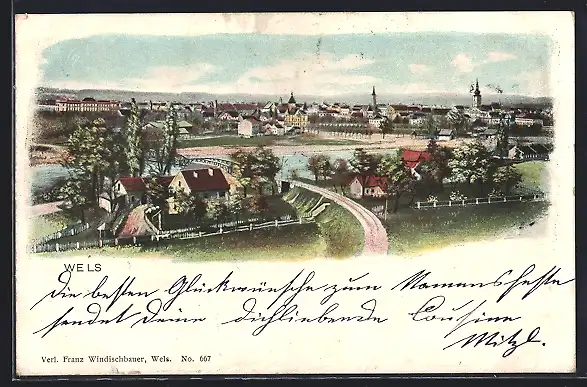 WELS
Die besten Glückwünsche zum Namensfeste
sendet Deine Dichliebende Cousine
Mitzl.
Verl. Franz Windischbauer, Wels. No. 667